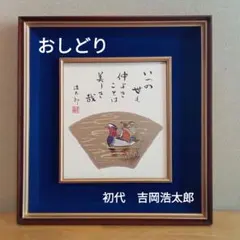 おしどり
いつの世も
仲よき
ことは
美しき
哉
初代 吉岡浩太郎